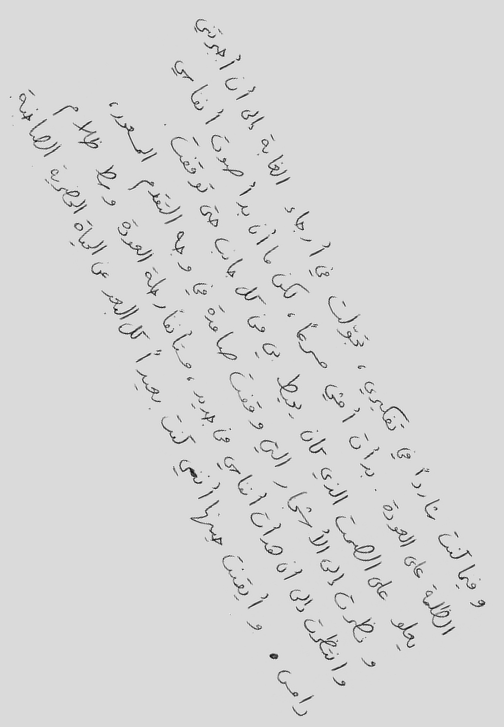 وفيما كنت شارداً في تفكيري، تجوّلت في أرجاء الغابة إلى أن أجبرتني
الظلمة على العودة. بدأت أمشي مسرعاً، لكن ما أن بدأ صوت أنفاسي
يعلو على الصمت الذي كان يحيط بي من كل جانب حتى توقفت.
ونظرت إلى الأشجار التي وقفت صامدة في وجه التقدم المسعور،
وانتظرت إلى أن هدأت أنفاسي من جديد، مستأنفاً رحلة العودة وسط ظلام
دامس. وأيقنت حينها أنني كنت بعيداً كل البعد عن الحياة الحضرية الصاخبة